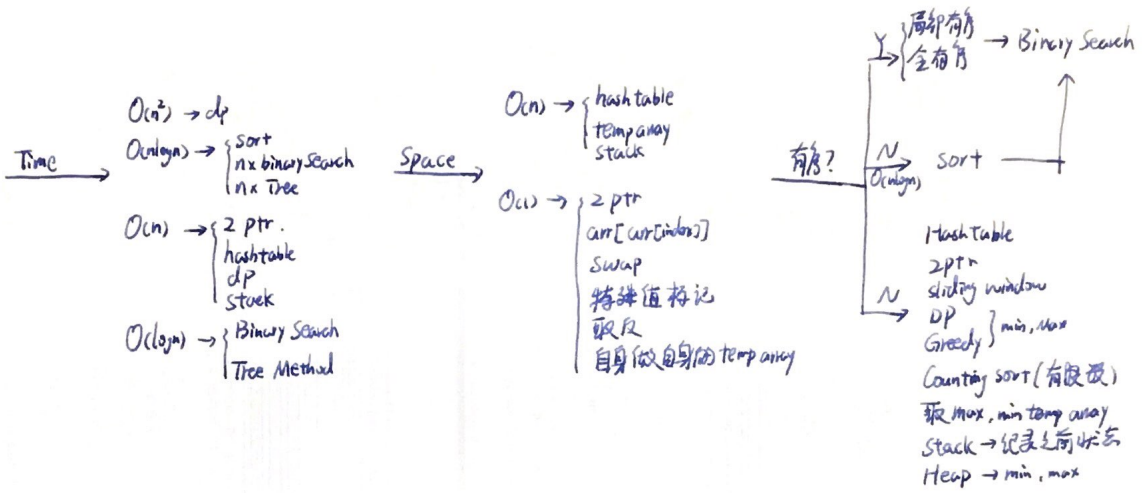 Time
O(n²) → dp
O(nlogn) →
sort
n x binary search
n x Tree
O(n) →
2 ptr.
hashtable
dp
stack
O(logn) →
Binary Search
Tree Method
Space
O(n) →
hashtable
temp array
stack
O(1) →
2 ptr
arr[arr[index]]
swap
特殊值标记
取反
自身做自身的temp array
有序?
Y
局部有序
全有序
→ Binary Search
N
O(nlogn)
sort
N
Hashtable
2ptr
sliding window
DP
Greedy
min, max
Counting sort (有限员)
取max, min temp array
Stack → 纪录之前状态
Heap → min, max